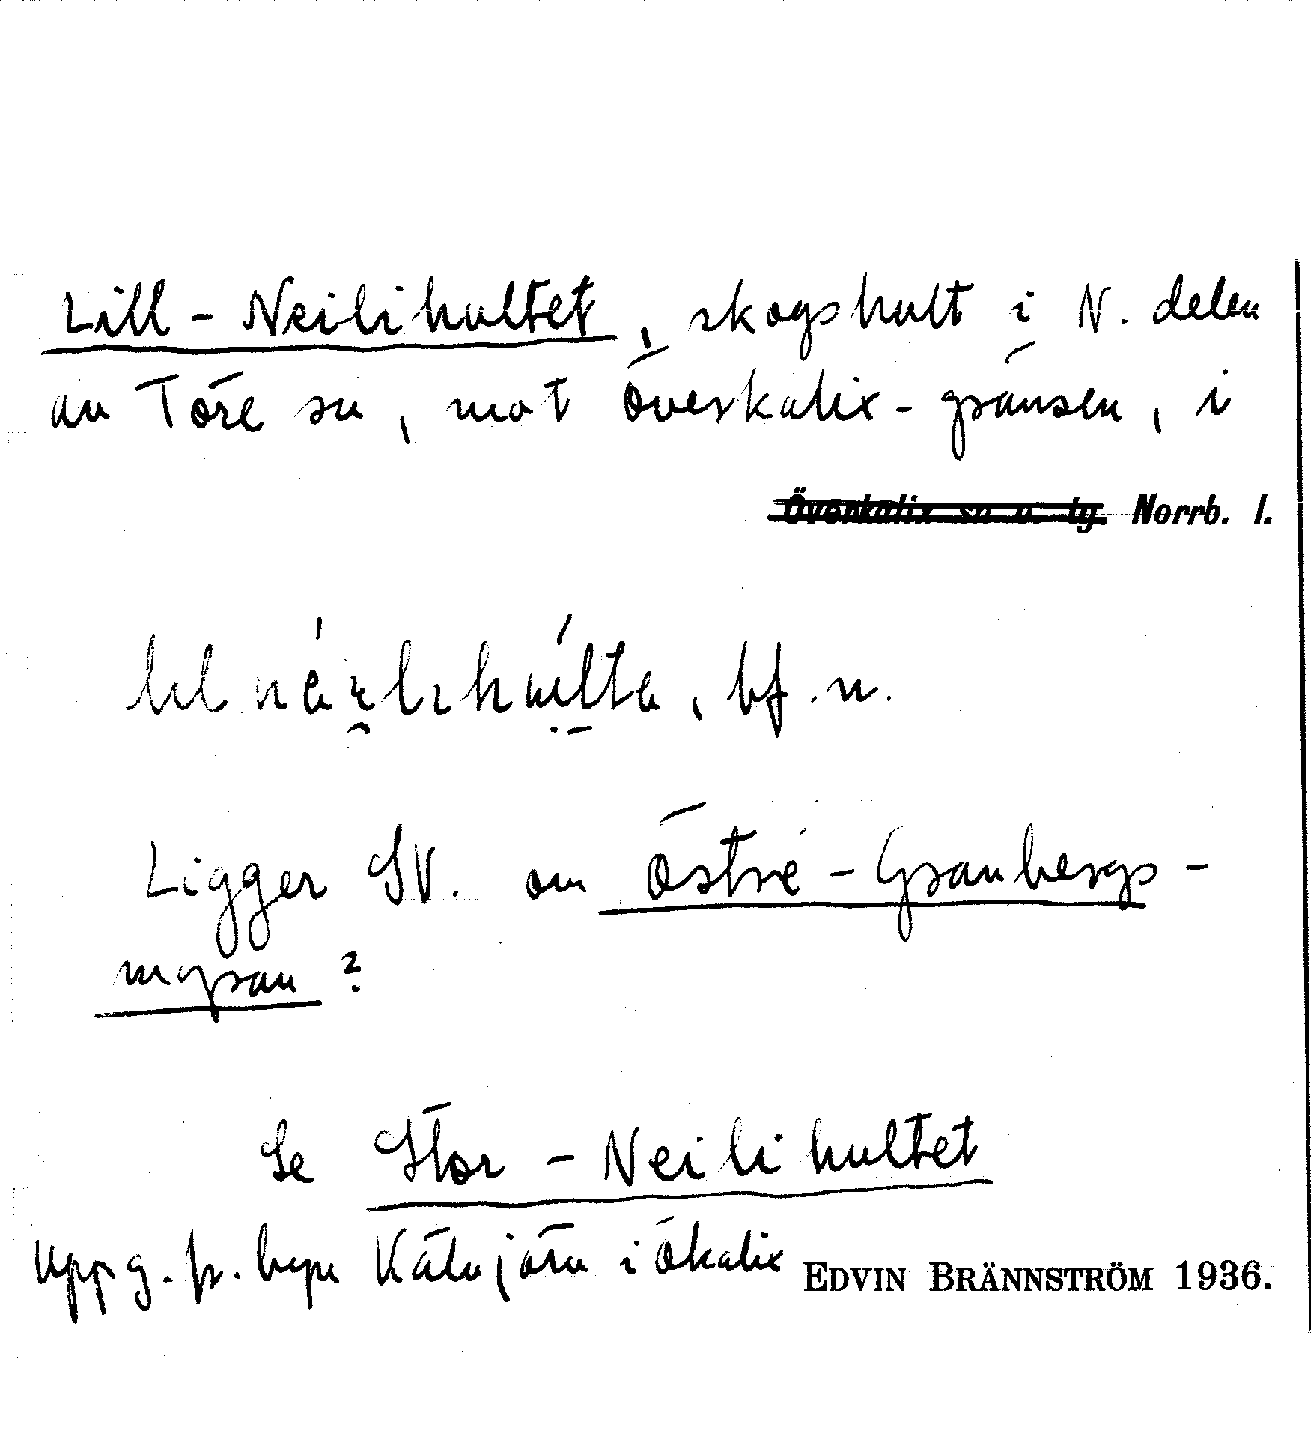 Lill-Neilihultet, skogshult i N. delen
av Töre sn, mot Överkalix-gränsen, i
Överkalix sn o. tg. Norrb. l.
bf. n.
Ligger SV. om Östre-Granbergs-
myran?
Se Stor-Neilihultet
Uppg. fr. byn Kälvjärv i Ökalix EDVIN BRÄNNSTRÖM 1936.